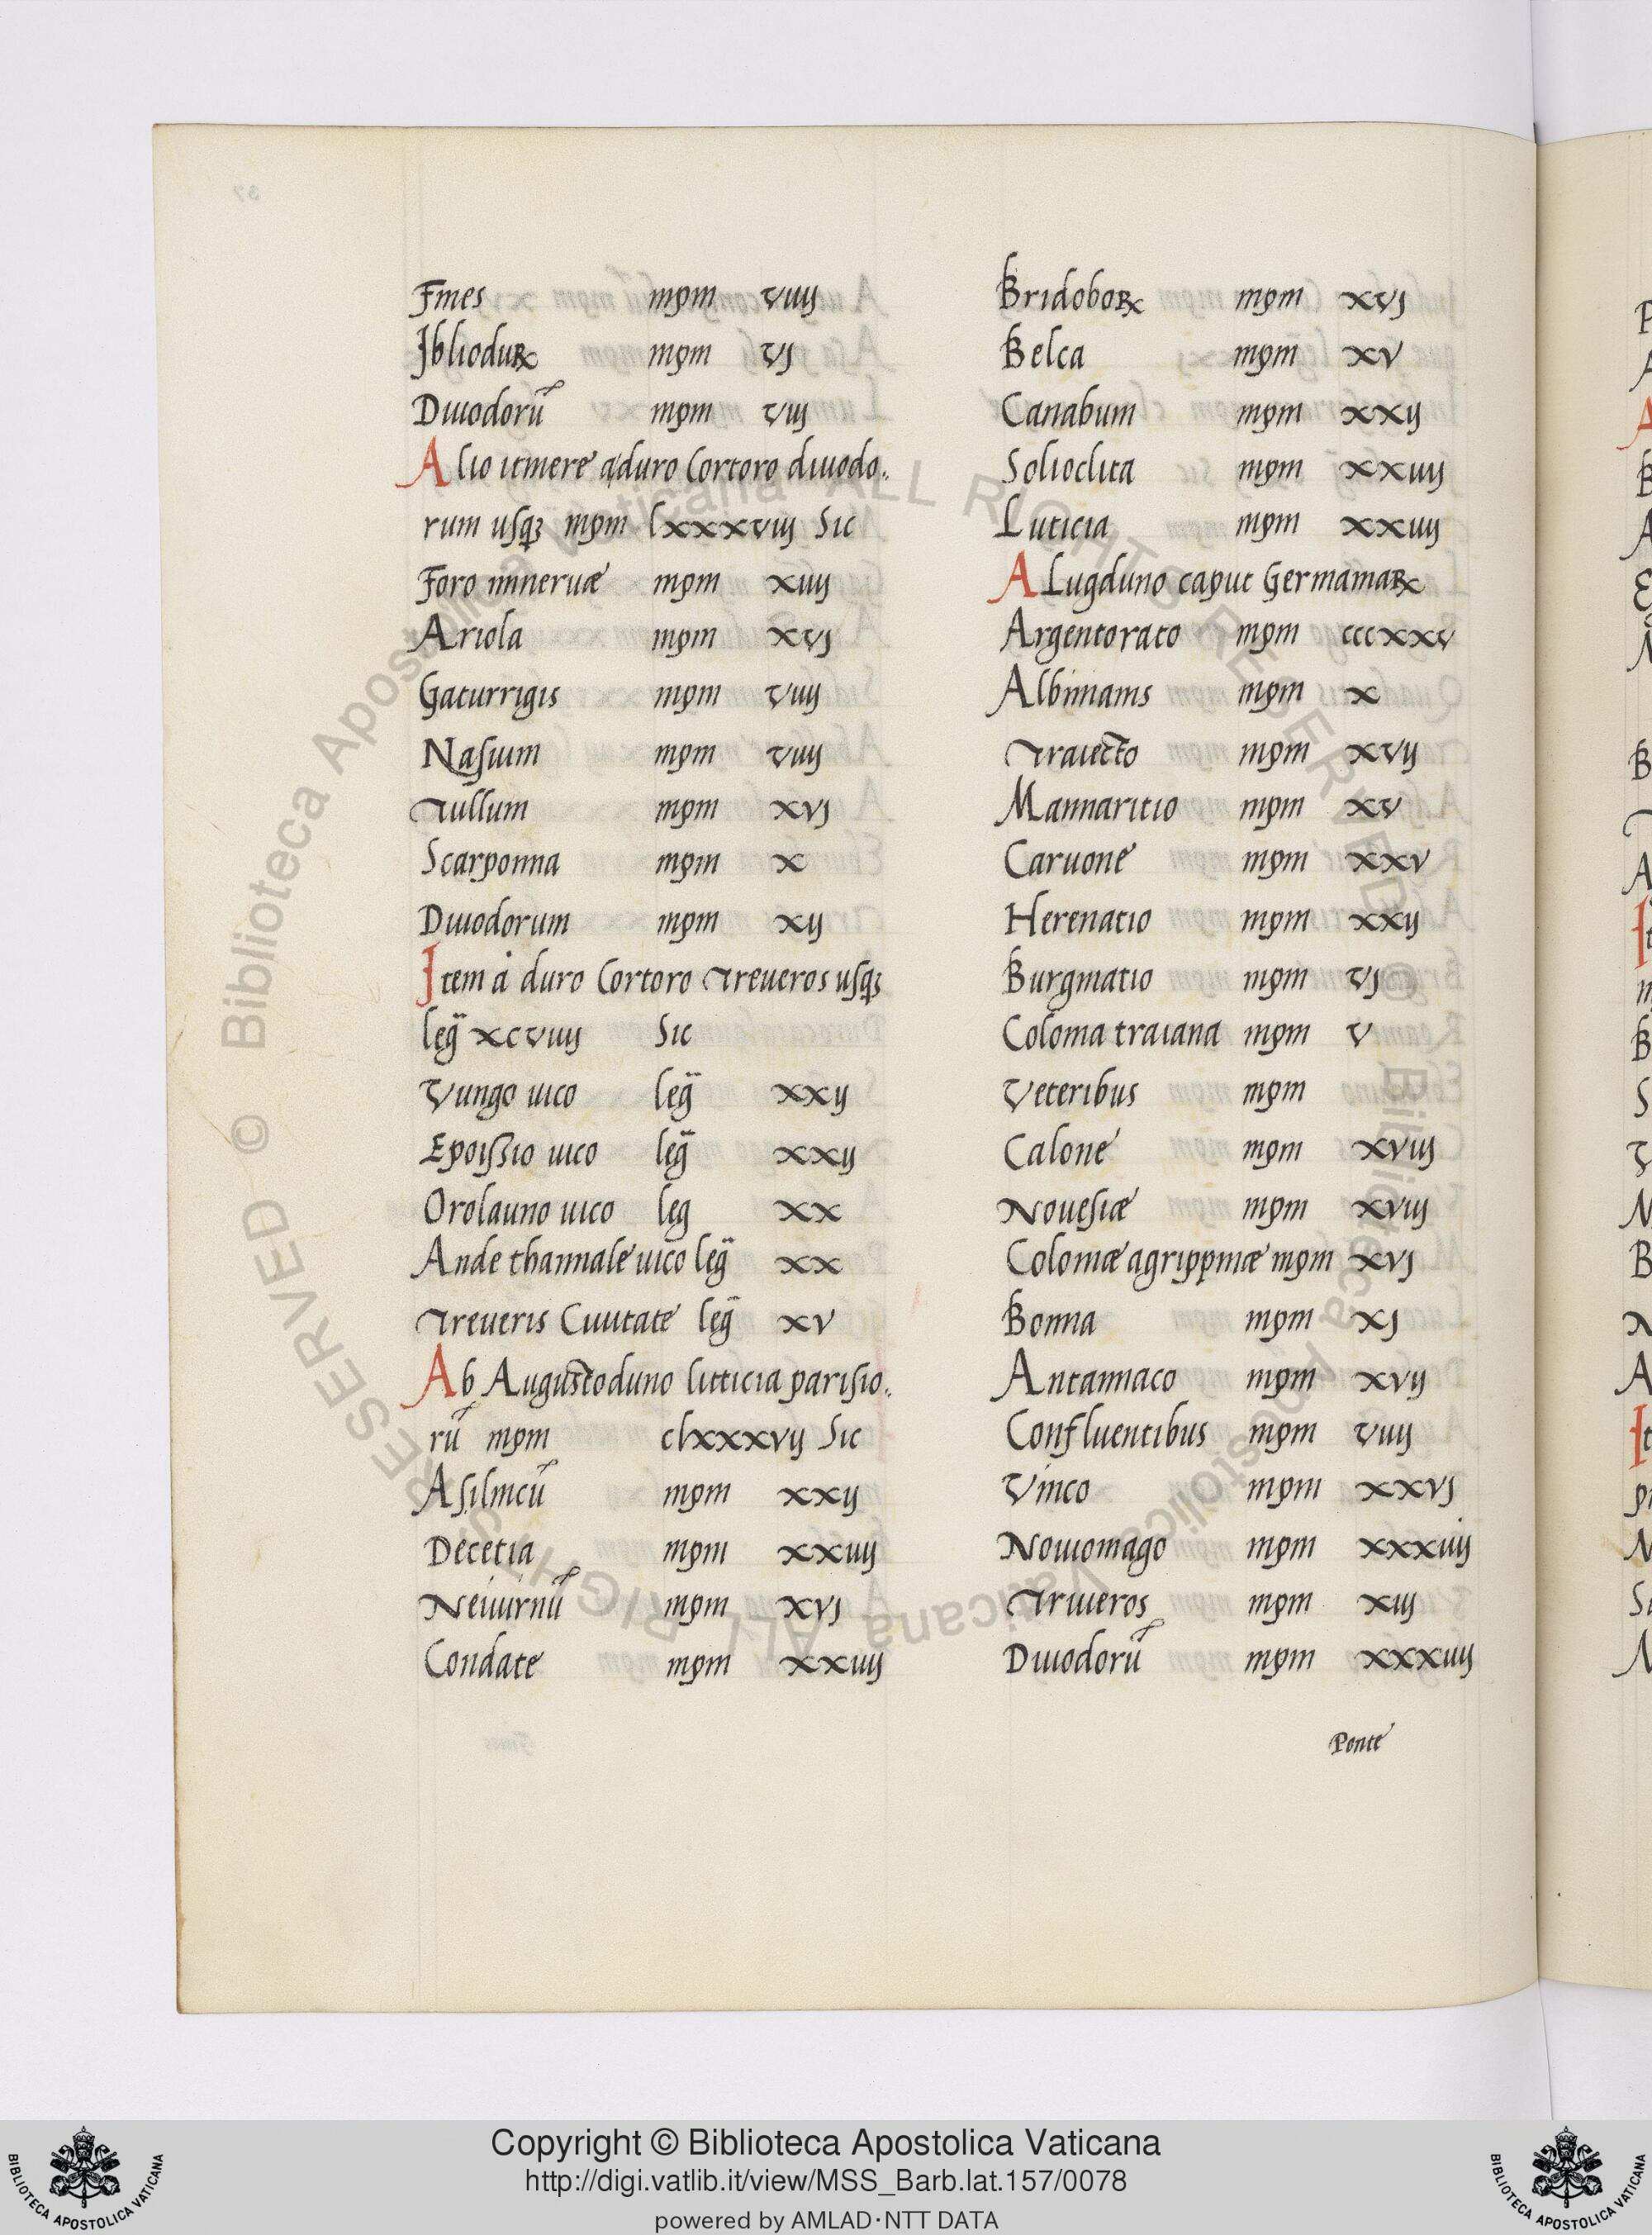 Fines mpm viiij
Ibliodurꝝ mpm vj
Diuodorū mpm viij
Alio itinere a duro Cortoro diuodo-
rum usq₃ mpm lxxxviij Sic
Foro mineruæ mpm xiiij
Ariola mpm xvj
Gaturrigis mpm viiij
Nasium mpm viiij
Tullum mpm xvj
Scarponna mpm x
Diuodorum mpm xij
Item á duro Cortoro Treueros usq₃
leg̃ xcviiij Sic
Vungo uico leg̃ xxij
Epoissio uico leg̃ xxij
Orolauno uico leg xx
Ande thannale uico leg̃ xx
Treueris Ciuitate leg̃ xv
Ab Augustoduno litticia parisio-
rū mpm clxxxvij Sic
Asilincū mpm xxij
Decetia mpm xxiiij
Neiuirnū mpm xvj
Condate mpm xxiiij
Bridoboꝝ mpm xvj
Belca mpm xv
Canabum mpm xxij
Solioclita mpm xxiiij
Luticia mpm xxiiij
A Lugduno caput Germaniaꝝ
Argentorato mpm cccxxv
Albinianis mpm x
Traiecto mpm xvij
Mannaritio mpm xv
Caruone mpm xxv
Herenatio mpm xxij
Burginatio mpm vj
Colonia traiana mpm v
Veteribus mpm
Calone mpm xviij
Nouesiæ mpm xviij
Coloniæ agrippinæ mpm xvj
Bonna mpm xj
Antannaco mpm xvij
Confluentibus mpm viiij
Vinco mpm xxvj
Nouiomago mpm xxxuij
Triueros mpm xiij
Diuodorū mpm xxxiiij
Ponte
© Biblioteca Apostolica Vaticana ALL RIGHTS RESERVED © Biblioteca Apostolica Vaticana ALL RIGHTS RESERVED
Copyright © Biblioteca Apostolica Vaticana
http://digi.vatlib.it/view/MSS_Barb.lat.157/0078
powered by AMLAD·NTT DATA
BIBLIOTECA APOSTOLICA VATICANA
BIBLIOTECA APOSTOLICA VATICANA